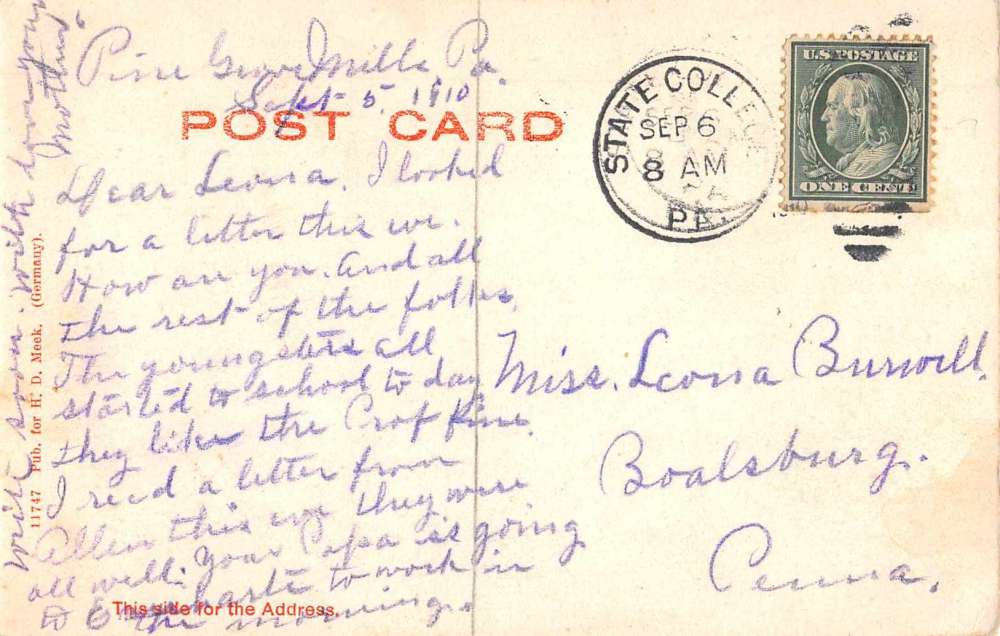 Pine Grove Mills, Pa.
Sept 5, 1910
POST CARD
Dear Leona. I looked
for a letter this eve.
How are you. And all
the rest of the folks.
The youngsters all
started to school to day
they like the Prof fine.
I recd a letter from
Allen this eve they were
all well. Your Papa is going
to to work in
the morning.
write soon. with love your
Mother
11747 Pub. for H. D. Meek. (Germany).
This side for the Address.
STATE COLLEGE
SEP 6
8 AM
PA.
1910
U.S. POSTAGE
ONE CENT
Miss. Leona Burwell.
Boalsburg.
Penna.